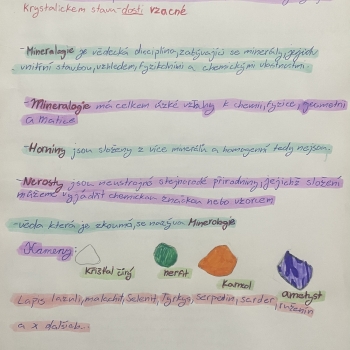 krystalickém stavu dosti vzácné
-Mineralogie je vědecká disciplína, zabývající se minerály, jejich
vnitřní stavbou, vzhledem, fyzikálními a chemickými vlastnostmi.
-Mineralogie má celkem úzké vztahy k chemii, fyzice, geometrii
a matice
-Horniny jsou složeny z více minerálů a homogenní tedy nejsou.
-Nerosty jsou neustrojné stejnorodé přírodniny, jejichž složení
můžeme vyjádřit chemickou značkou nebo vzorcem
-věda která je zkoumá, se nazývá Mineralogie
Kameny:
křišťál čirý
nefrit
karneol
ametyst
Lapis lazuli, malachit, Selenit, Tyrkys, serpentin, sarder, růženín
a x dalších.